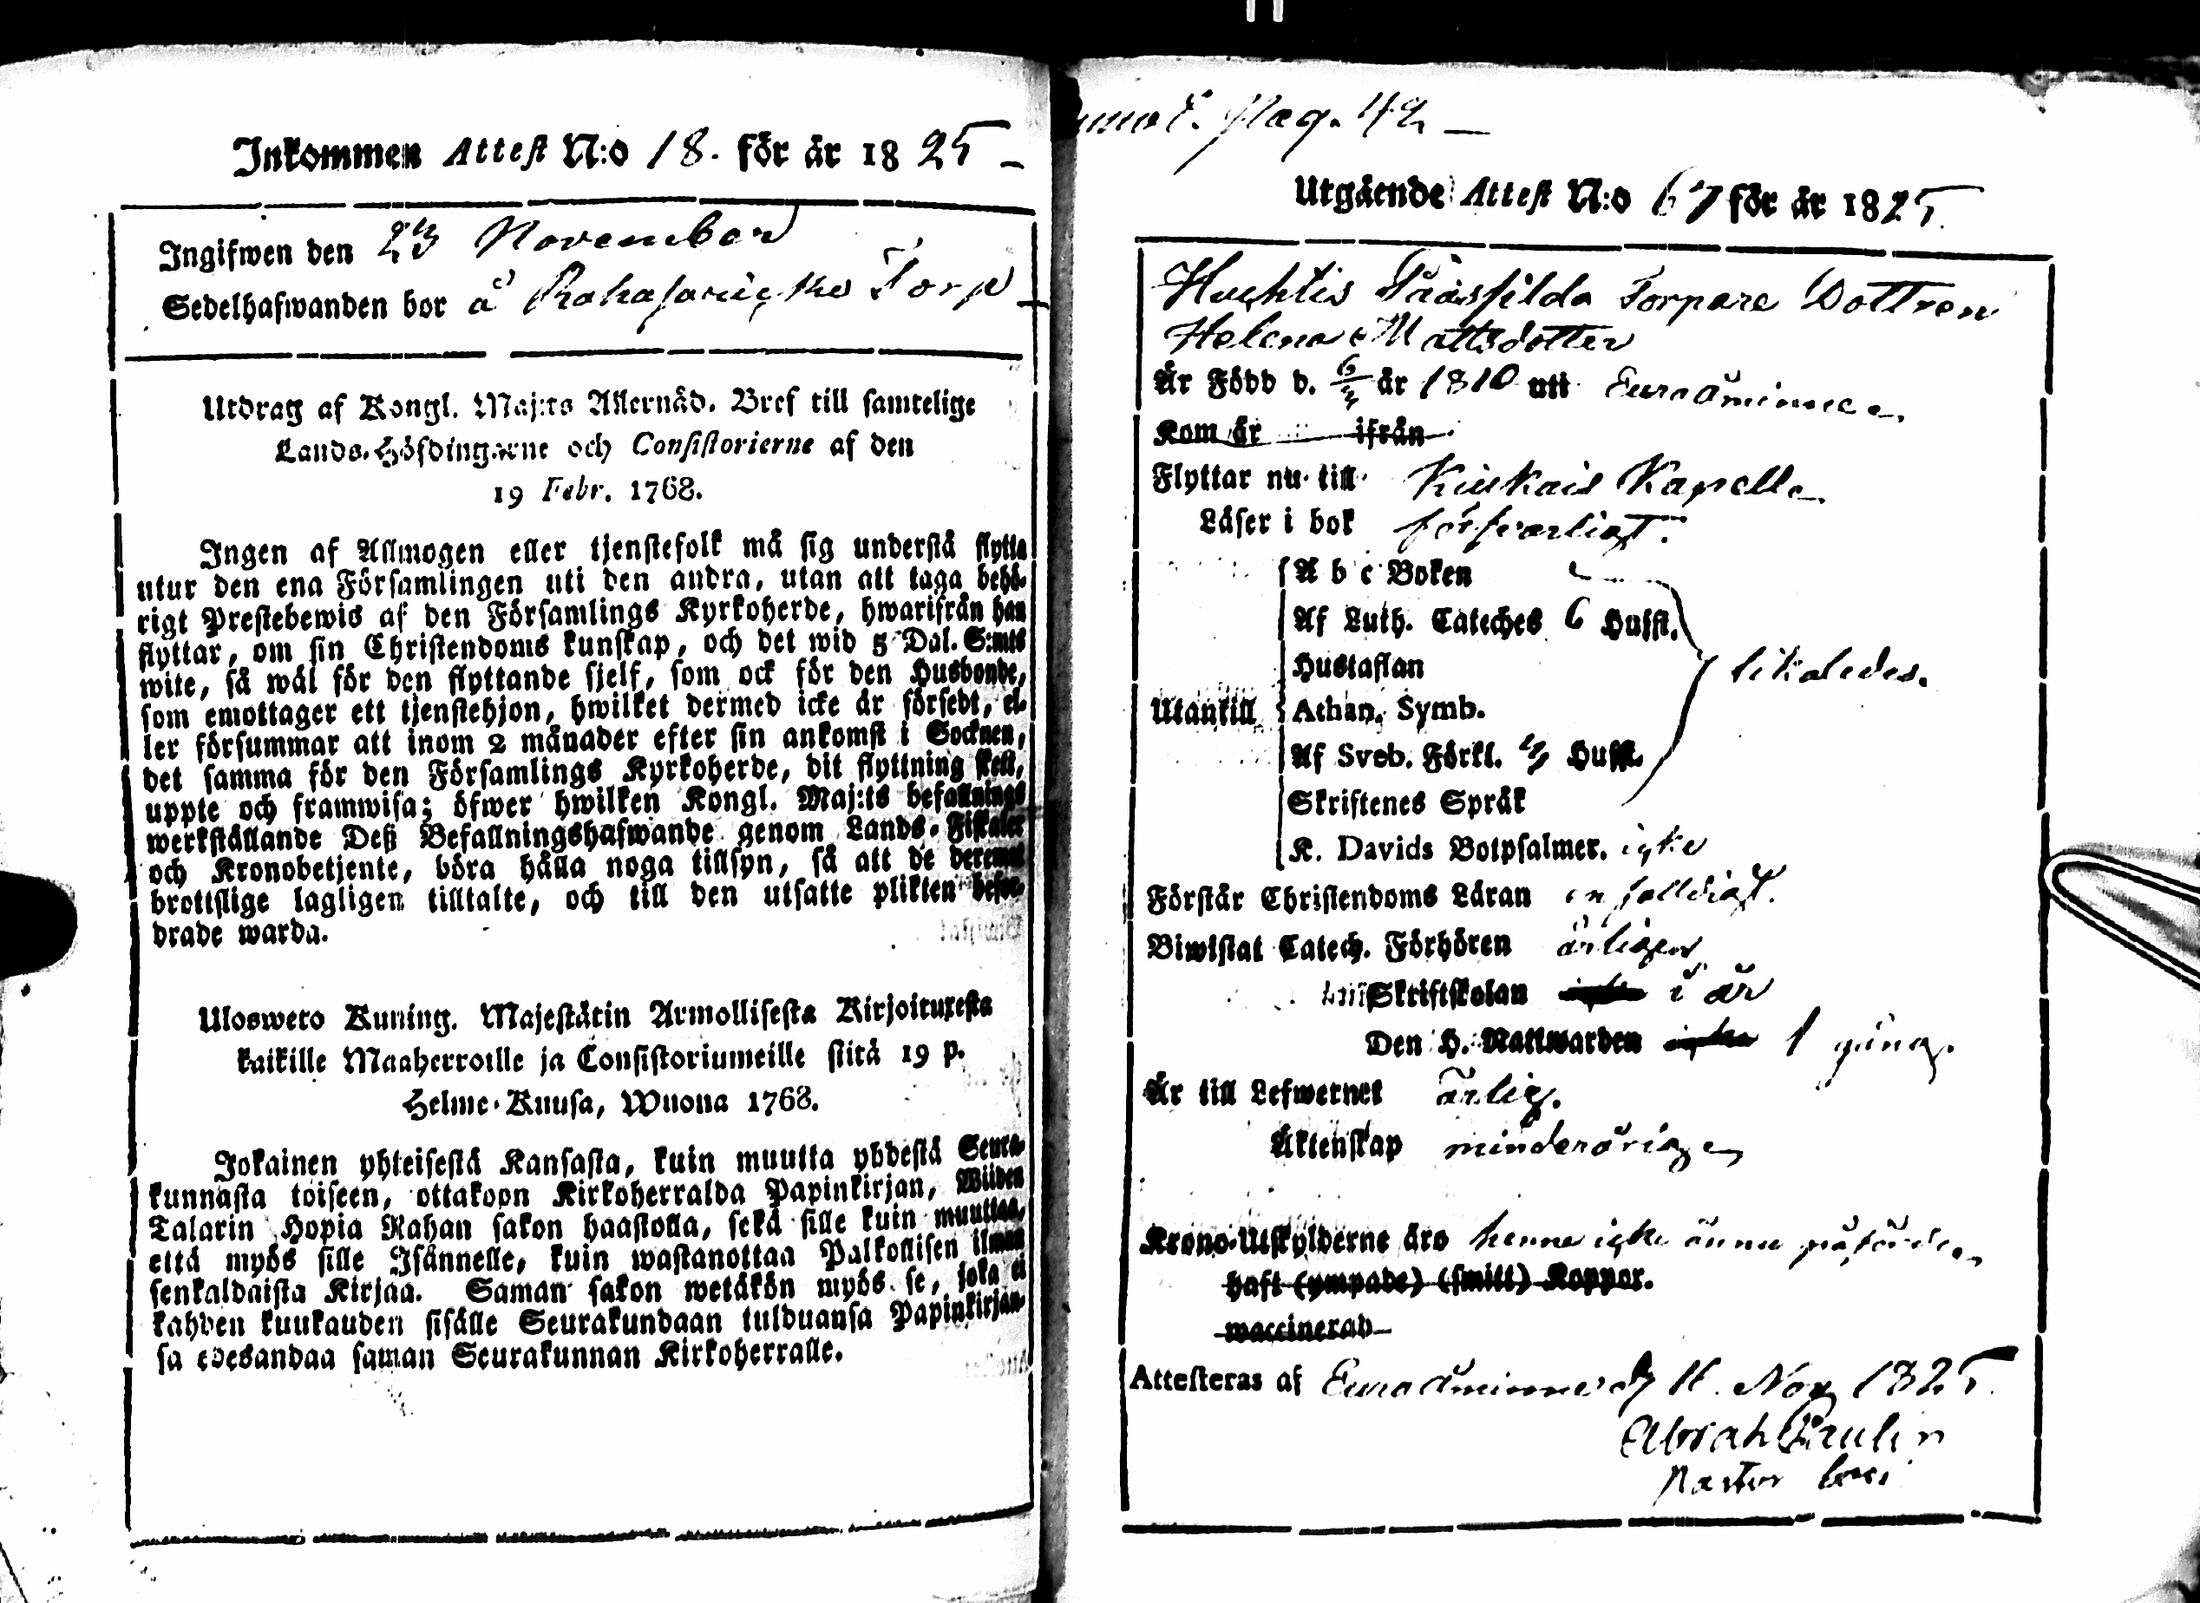 Inkommen Attest N:o 18. för år 1825 –
Ingifwen den 23 November
Sedelhafwanden bor å Torp –
Utdrag af Kongl. Maj:ts Allernåd. Bref till samtelige
Lands-Höfdingarne och Consistorierne af den
19 Febr. 1768.
Ingen af Allmogen eller tjenstefolk må sig understå flytta
utur den ena Församlingen uti den andra, utan att taga behö-
rigt Prestebewis af den Församlings Kyrkoherde, hwarifrån han
flyttar, om sin Christendoms kunskap, och det wid 5 Dal. S:mts
wite, så wäl för den flyttande sjelf, som ock för den Husbonde,
som emottager ett tjenstehjon, hwilket dermed icke är försedt, el-
ler försummar att inom 2 månader efter sin ankomst i Socknen,
det samma för den Församlings Kyrkoherde, dit flyttning skett,
uppte och framwisa; öfwer hwilken Kongl. Maj:ts befallnings
werkställande Deß Befallningshafwande genom Lands-Fiskaler
och Kronobetjente, böra hålla noga tillsyn, så att de deremot
brottslige lagligen tilltalte, och till den utsatte plikten befor-
drade warda.
Uloswero Kuning. Majestätin Armollisesta Kirjoituxesta
kaikille Maaherroille ja Consistoriumeille siitä 19 p.
Helme-Kuusa, Wuona 1768.
Jokainen yhteisestä Kansasta, kuin muutta yhdestä Seura-
kunnasta toiseen, ottakoon Kirkoherralda Papinkirjan, Wiiden
Talarin Hopia Rahan sakon haastolla, sekä sille kuin muuttaa,
että myös sille Isännelle, kuin wastanottaa Palkollisen ilman
senkaldaista Kirjaa. Saman sakon wetäkön myös se, joka ei
kahden kuukauden sisälle Seurakundaan tulduansa Papinkirjan-
sa edesandaa saman Seurakunnan Kirkoherralle.
Pag. 42 –
Utgående Attest N:o 67 för år 1825.
Torpare Dottren
Helena Mattsdotter
Är Född d. 6/4 år 1810 uti Euraåminne
Kom år ifrån
Flyttar nu till Kiukais Kapell
Läser i bok försvarligt.
Utantill
A b c Boken
Af Luth. Cateches 6 Hufst.
Hustaflan
Athan. Symb.
likaledes.
Af Sveb. Förkl. 4 Hufst.
Skriftenes Språk
K. Davids Botpsalmer. icke
Förstår Christendoms Läran enfalldigt.
Biwistat Catech. Förhören årligen
Skriftskolan i år
Den H. Nattwarden 1 gång.
Är till Lefwernet ärlig.
Äktenskap minderårig
Krono-Utskylderne äro henne icke ännu påförde
haft (ympade) (smitt) Koppor.
waccinerad
Attesteras af Euraåminne d 11 Nov 1825.
Abrah Paulin
Pastor loci